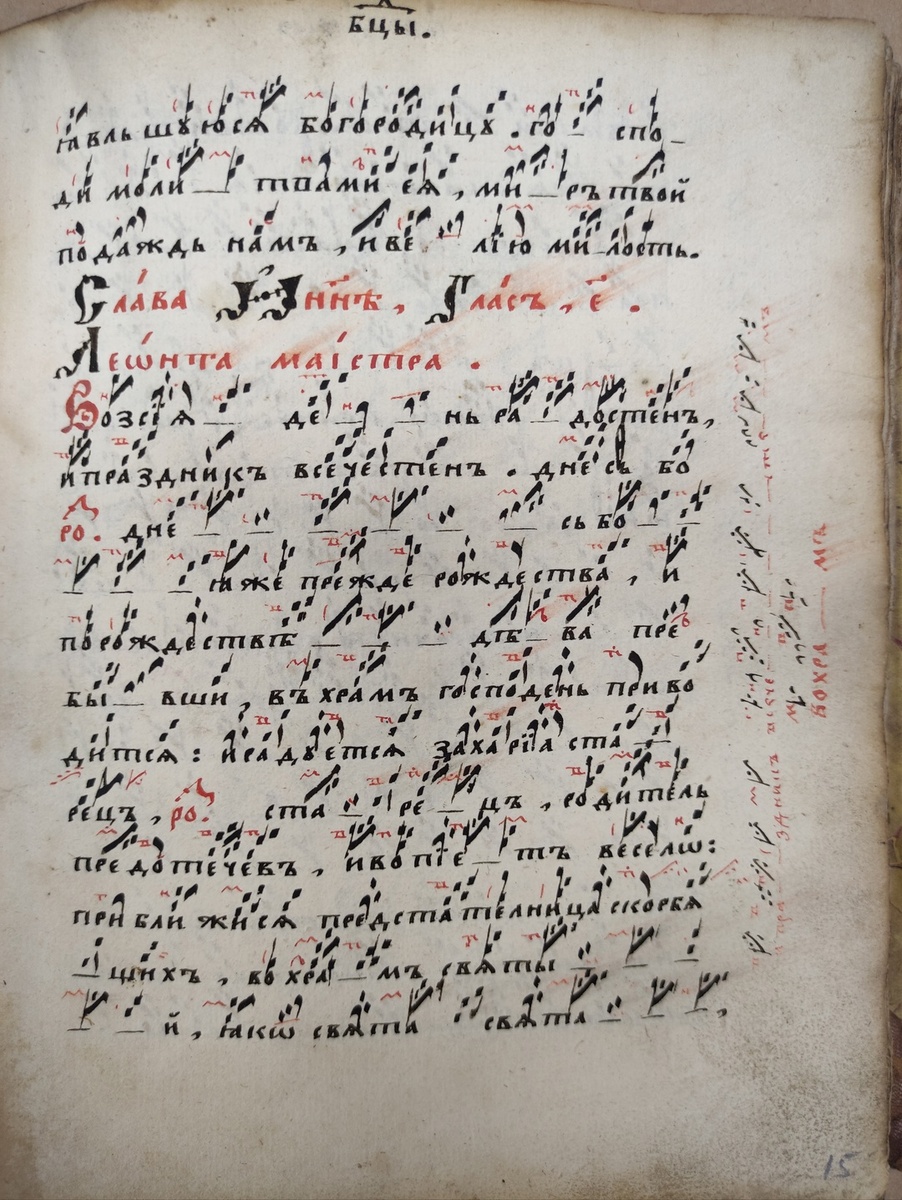 бцы.
ꙗвльшуюся богородицу. го спо
ди моли твами ея, ми ръ твой
подаждь намъ, и ве лїю ми лость.
Слава И Ннѣ, Гласъ, є҃.
Леѡнта маїстра.
Возсїя де нь ра достенъ,
и праздникъ всечестенъ. днесь бо
ро. дне сь бо
ꙗже прежде рождества, и
по рождествѣ дѣ ва пре
бы вши, въ храмъ господень приво
дится: и радуется захарїа ста
рецъ, ро. ста ре цъ, родитель
предотечевъ, и вопїе тъ веселѡ:
приближися предстателница скорбя
щихъ, во хра мъ святы
й, ꙗкѡ свята свята,
во хра мъ
15